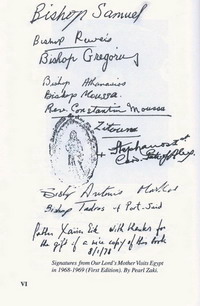 Bishop Samuel
Bishop Ruweis
Bishop Gregorius
Bishop Athanasius
Bishop Moussa
Rev. Constantin Moussa
Zitoune
+ Stephanos
Bishop Antonio Markos
Bishop Tadros + Port-Said
Father Xavier Eid with thanks for
the gift of a nice copy of this book
8/1/78
Signatures from Our Lord's Mother Visits Egypt
in 1968-1969 (First Edition). By Pearl Zaki.
VI